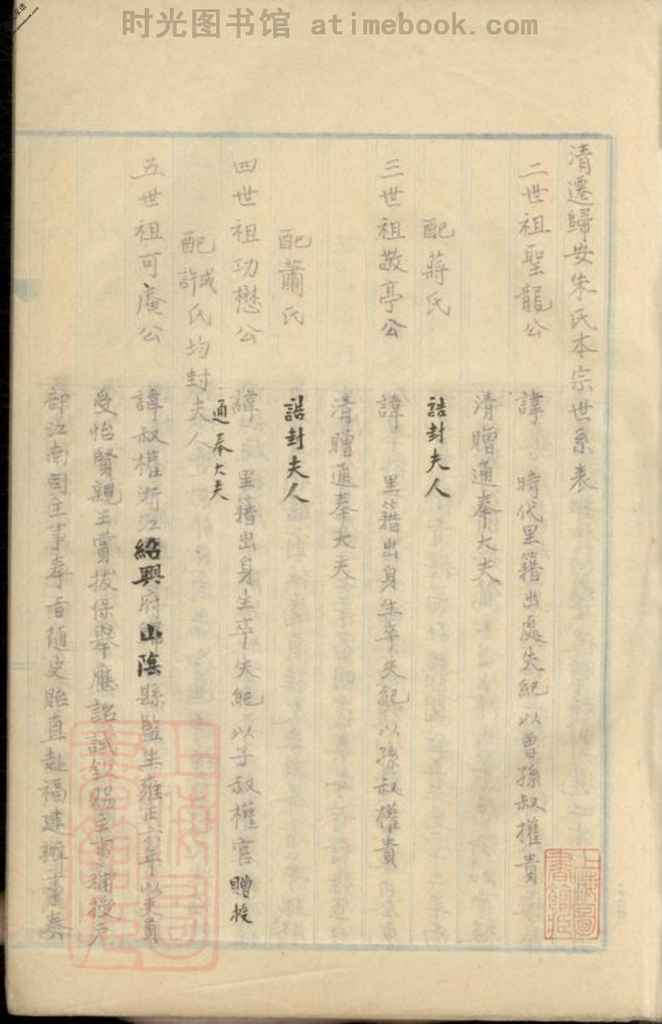 时光图书馆 atimebook.com
清遷歸安朱氏本宗世系表
二世祖聖龍公 諱 時代里籍出處失紀以曾孫叔權貴
清贈通奉大夫
配蔣氏 誥封夫人
三世祖敬亭公 諱 里籍出身生卒失紀以孫叔權貴
清贈通奉大夫
配蕭氏 誥封夫人
四世祖功懋公 諱 里籍出身生卒失紀以子叔權官贈授
通奉大夫
配許氏均封夫人
五世祖可庵公 諱叔權浙江紹興府山陰縣監生雍正六年以東員
受怡賢親王賞拔保舉應詔試欽賜主事補授戶
部江南司主事奉旨隨史貽直赴福建辦差奏
上海圖書館藏